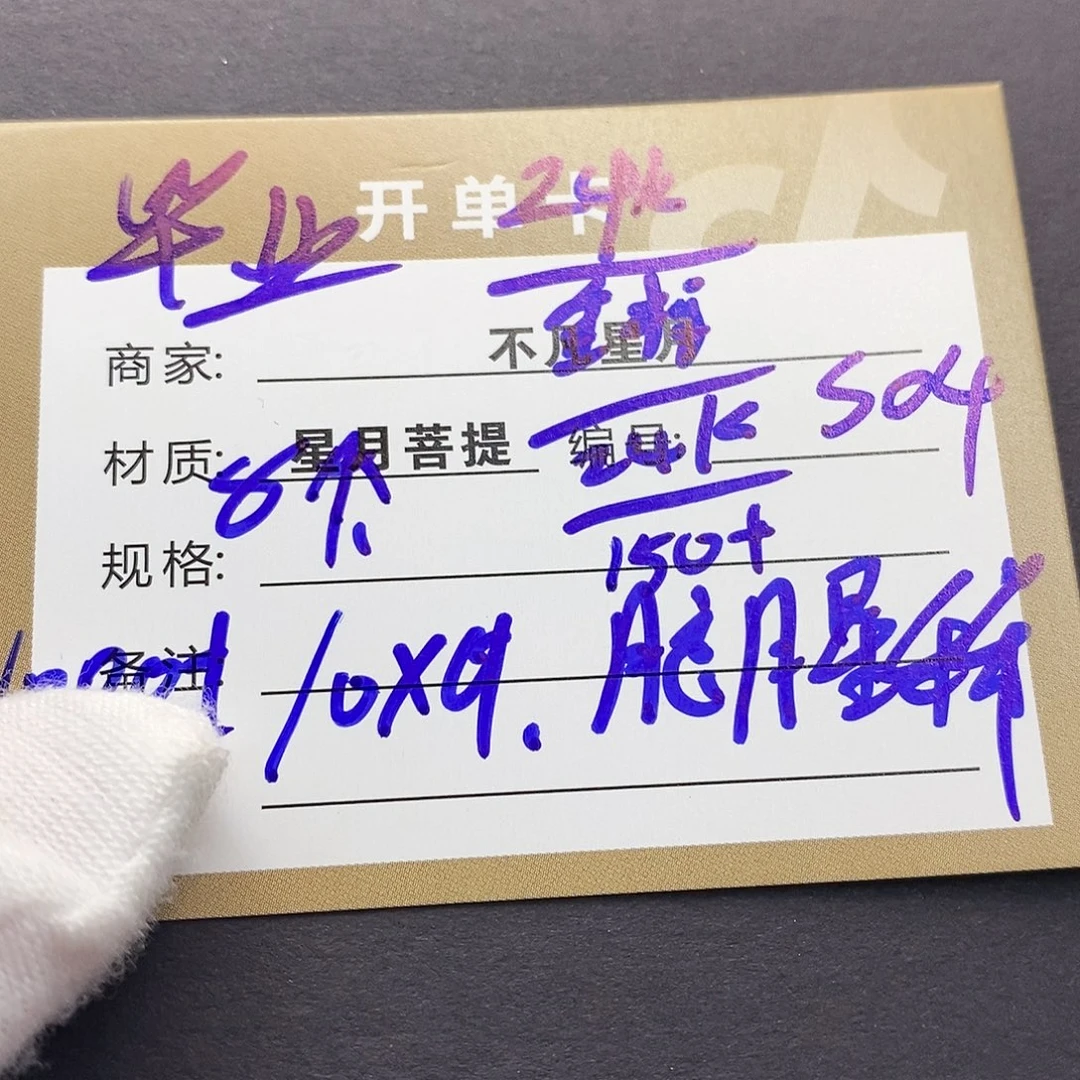 毕业 开单卡 24k
商家: 不凡星月
504
材质: 星月菩提 编号: 24k
8个.
规格: 150+
备注: 10X9. 月星